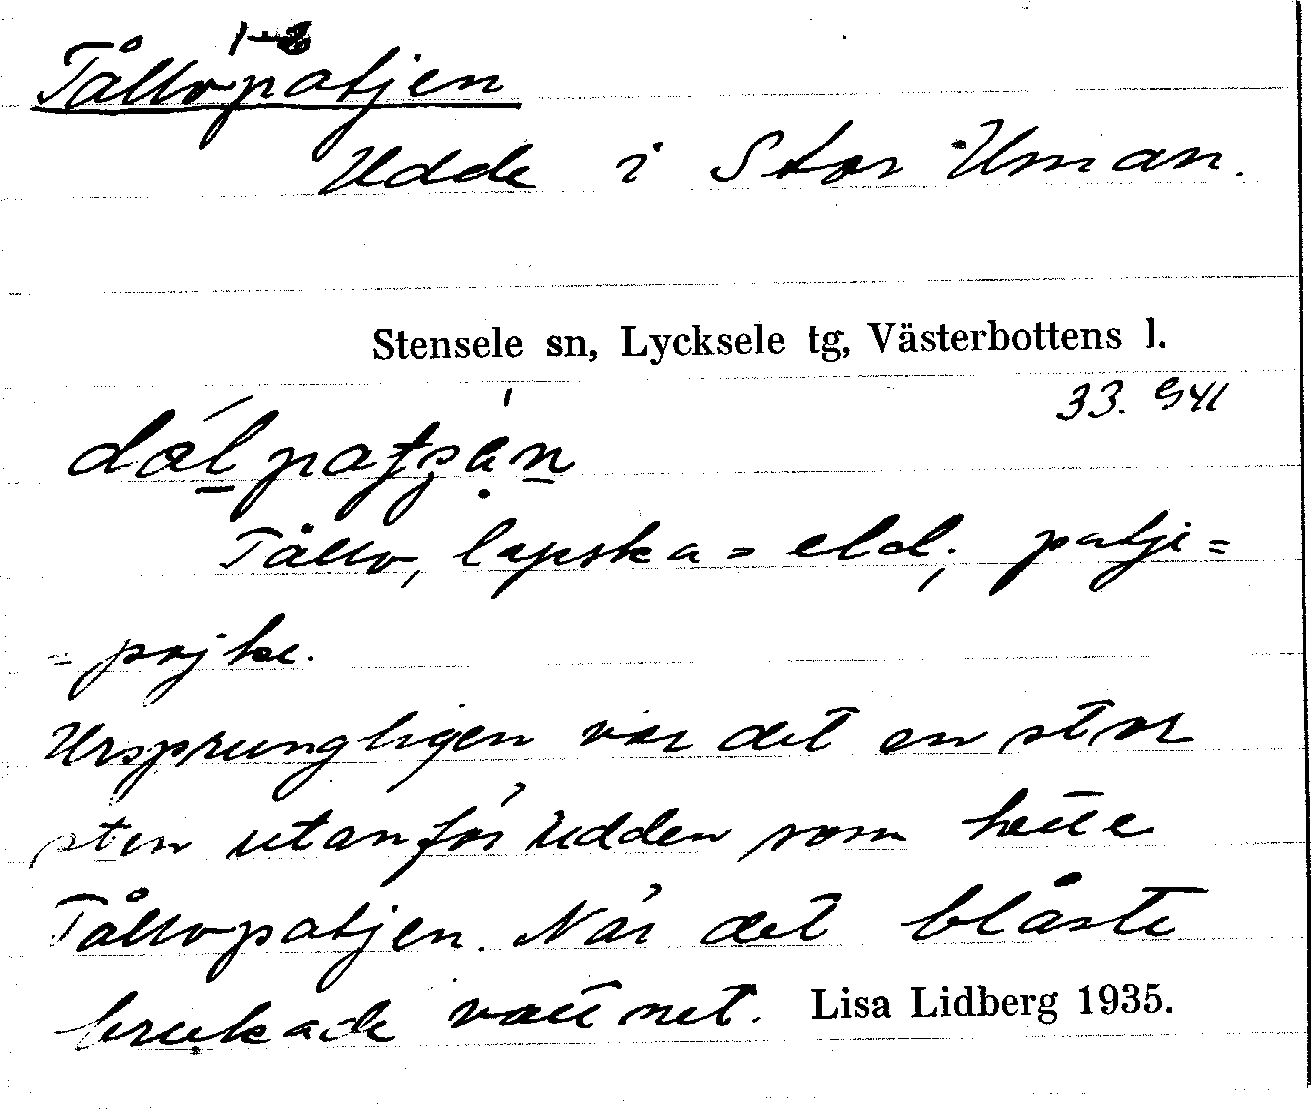 1-2
Tållopatjen
Udde i Stor Uman.
Stensele sn, Lycksele tg, Västerbottens l.
33. G41
Tållo, lapska = eld; patje =
= pojke.
Ursprungligen var det en stor
sten utanför udden som hette
Tållopatjen. När det blåste
brukade vattnet. Lisa Lidberg 1935.